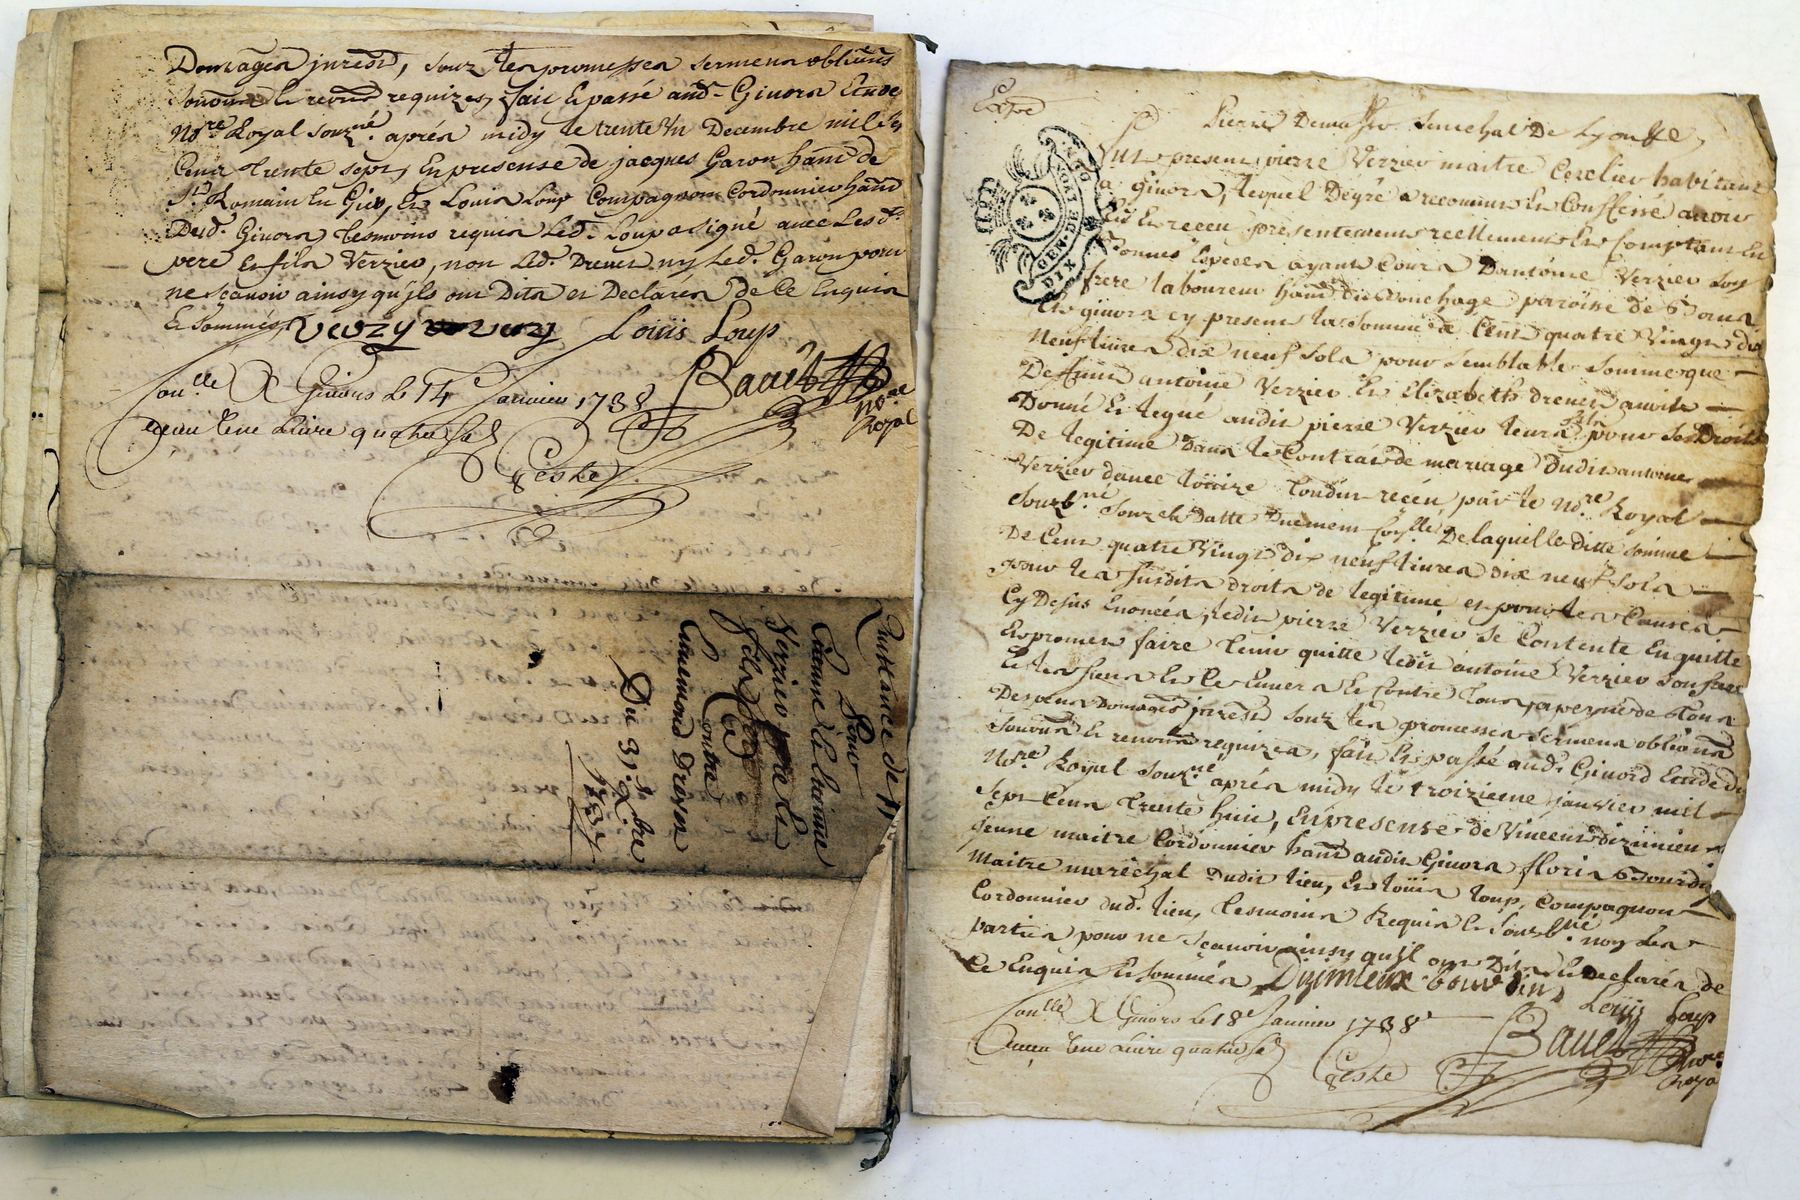 Domages jnterest, souz les promesses sermens obliõns
renons requizes, fait Et passé aud. Givors Etude
No.re Royal souz.né aprés midy le trente Un Decembre mil sept
Cens trente sept, En presense de jacques Garon habt de
St Romain En Gier, Et Louis Loup Compagnon Cordonnier habt
Dud. Givors, tesmoins requis Led. Loup a signé avec Lesd.
pere Et fils Verzier, non Led. Drevet ny Led. Garon pour
ne scavoir ainsy qu'jls ont Dits et Declarés de Ce Enquis
Et Sommés
Loüis Loup
Conllé A Givors le 14e Janvier 1738
Recu Une Livre quatre sols
Bauet
No.re
Royal
Quittance de
Pour
Verzier
Contre
Ennemond Dreven
Du 31 Xbre
1737
Expé
Pierre Demasso Senechal De Lyon
DIX DEN.
GEN. DE LYON
Fut present pierre Verzier maitre Cerclier habitant
a givors, lequel De gré a reconnu Et Conffessé avoir
Eu Et receu presentement reellement Et Comptant En
bonnes Especes ayant Cours D'antoine Verzier son
frere laboureur habt du Bouchage paroisse de
Et givors cy present la somme de Cent quatre Vingt dix
Neuf livres dix neuf sols pour semblable somme que
Deffunt antoine Verzier Et Elizabeth drevet avoit
Donné Et legué audit pierre Verzier leurs fils pour ses Droits
De legitime Dans le Contrat de mariage Dudit antoine
Verzier avec loüize receu par le No.re Royal
Souzb.né Souz sa Datte Duement Con.llé De laquelle ditte somme
De Cent quatre Vingt dix neuf livres dix neuf sols
pour les susdits droits de legitime et pour les Causes
Cy Desus Enoncés, ledit pierre Verzier se Contente En quitte
Et promet faire tenir quitte ledit antoine Verzier son frere
Et les siens Et Ce Envers Et Contre tous a peyne de tous
Despens Domages jnterest souz les promesses sermens obliõns
renons requizes, fait Et passé aud. Givord Etude du
No.re Royal Souz.né aprés midy le troizieme janvier mil
Sept Cens trente huit, En presense de Vincent dizimieu
jeune maitre Cordonnier habt audit Givors floris Bourdin
Maitre maréchal Dudit lieu, Et loüis loup, Compagnon
Cordonnier dud. lieu, tesmoins Requis Et Souzb.né non les
parties pour ne scavoir ainsy qu'jl ont Dits Et Declarés de
Ce Enquis Et Sommés Dizimieux bourdin
Loüis Loup
Conllé A Givors le 18e Janvier 1738
Receu Une Livre quatre sols
Bauet
No.re
Royal